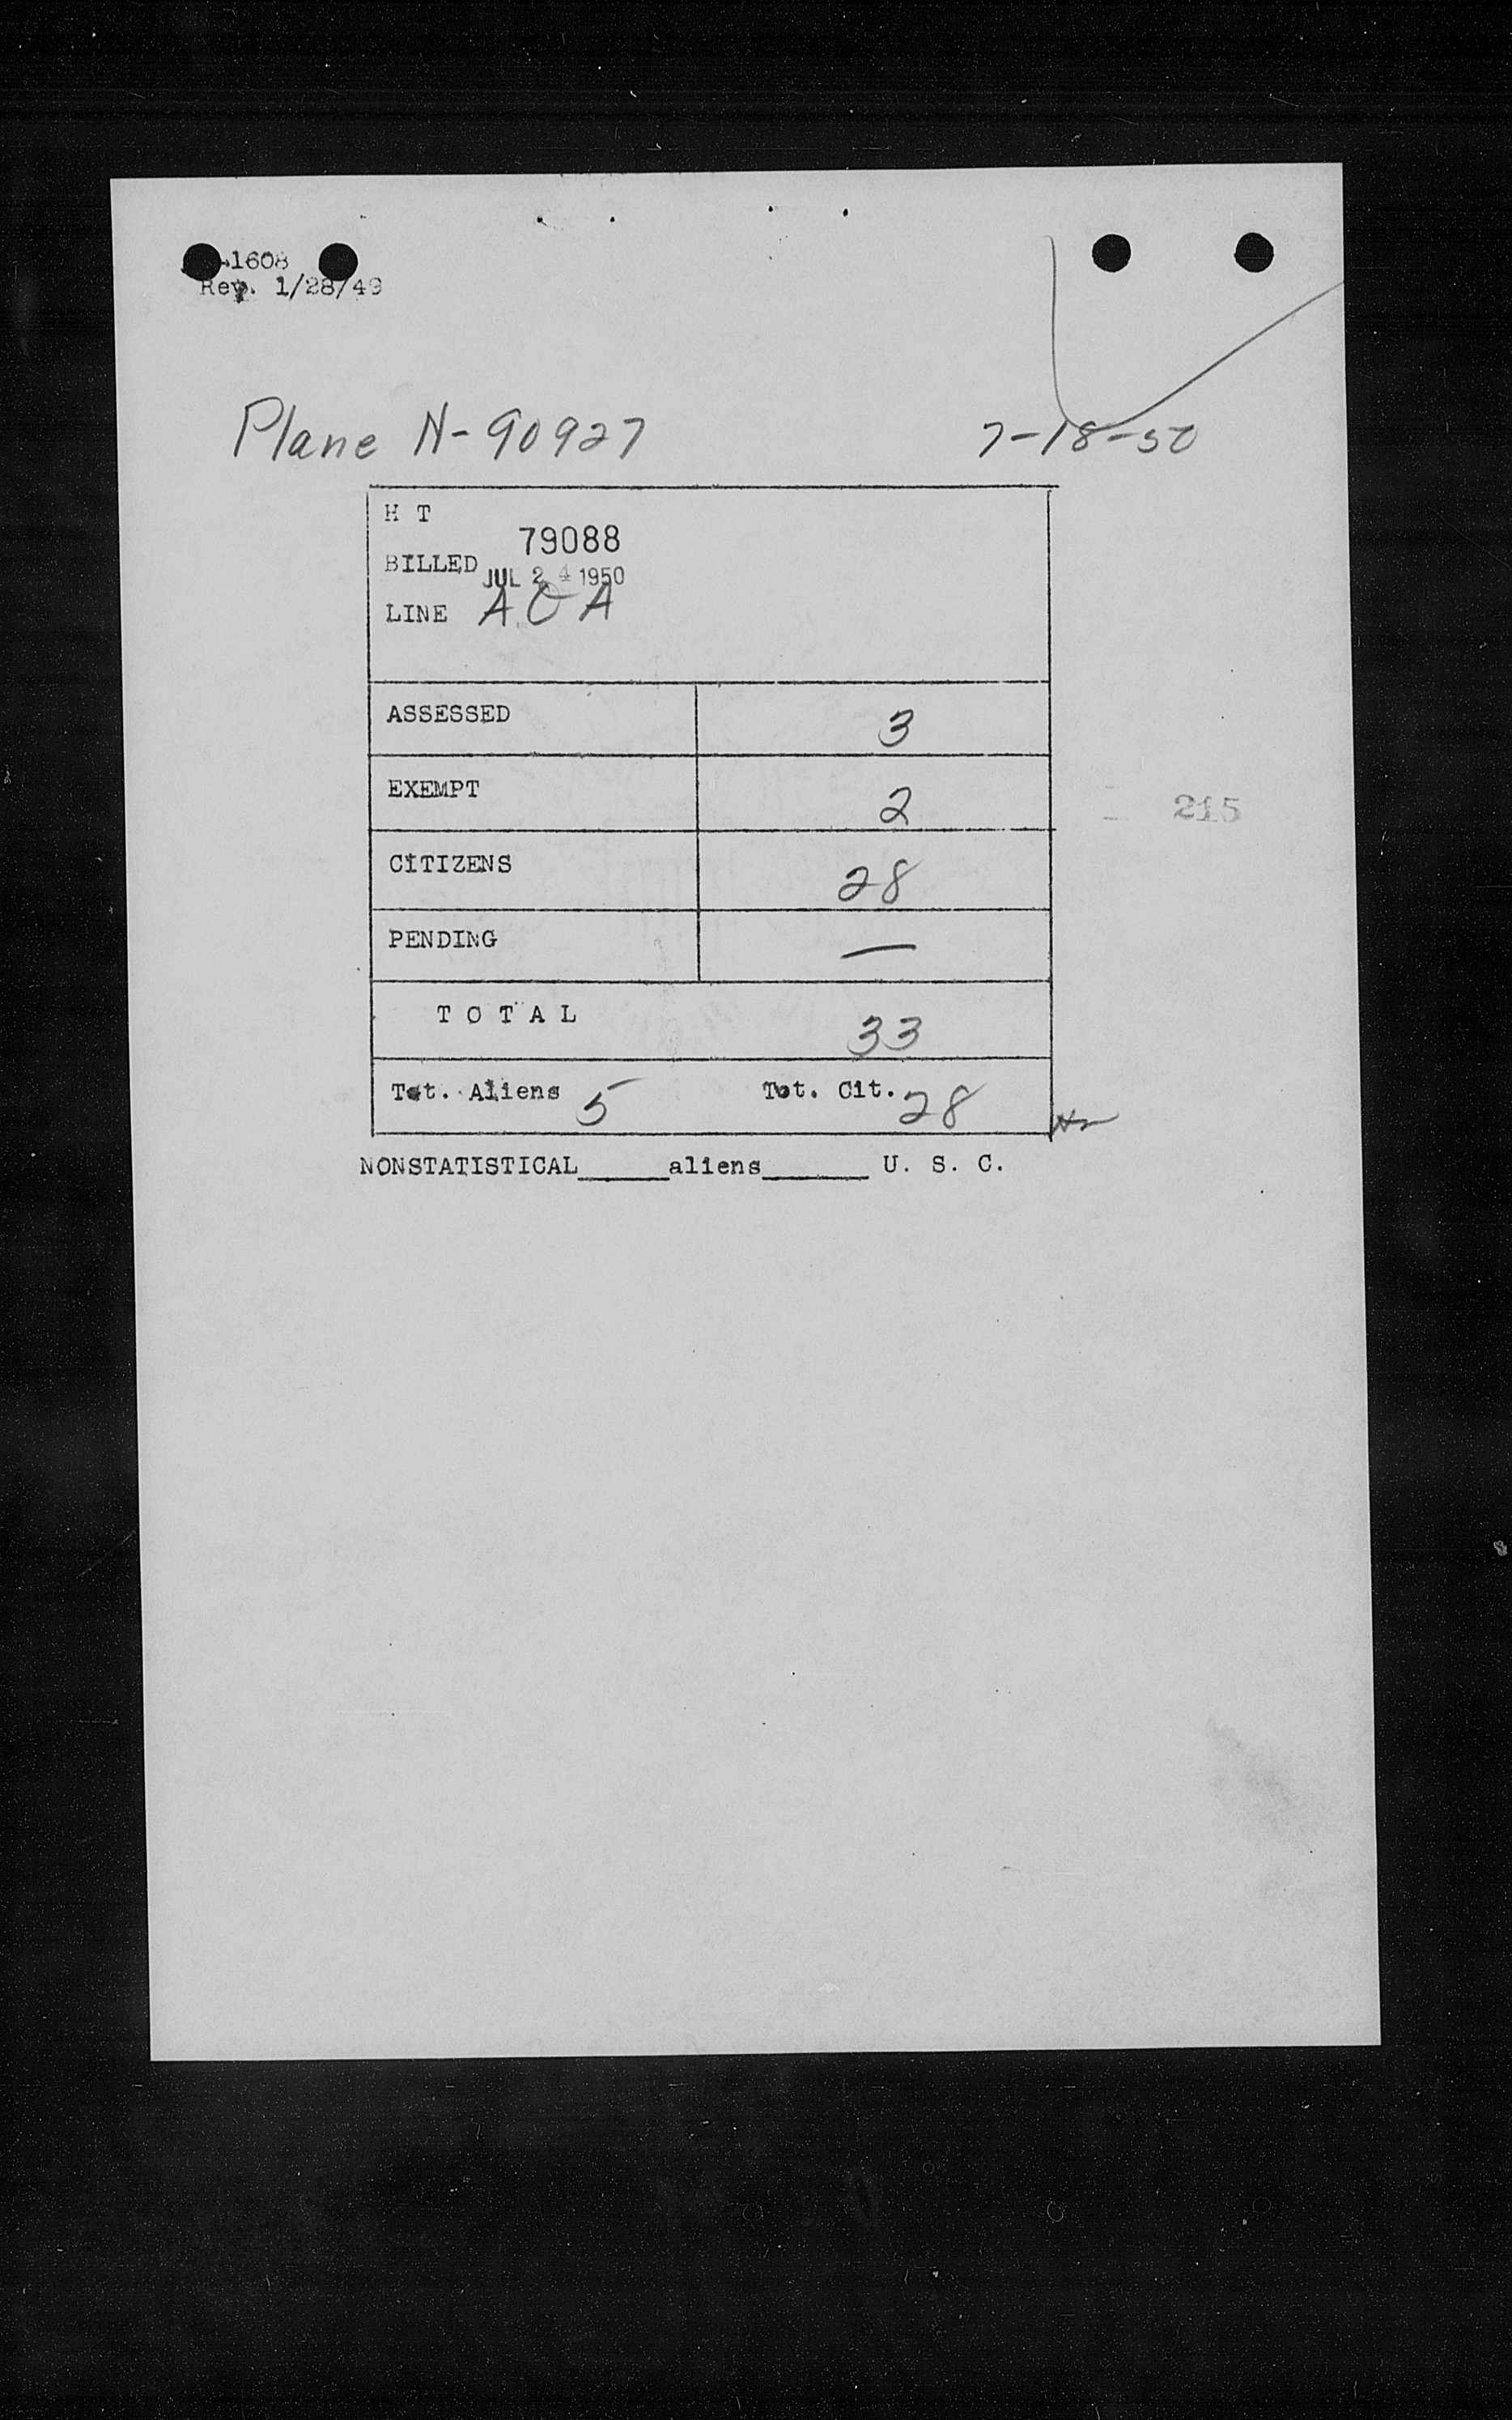 1608
Rev. 1/28/49
Plane N-90927 7-18-50
H T
79088
BILLED JUL 24 1950
LINE A O A
ASSESSED 3
EXEMPT 2
215
CITIZENS 28
PENDING —
T O T A L 33
Tot. Aliens 5 Tot. Cit. 28
NONSTATISTICAL_____aliens______ U. S. C.